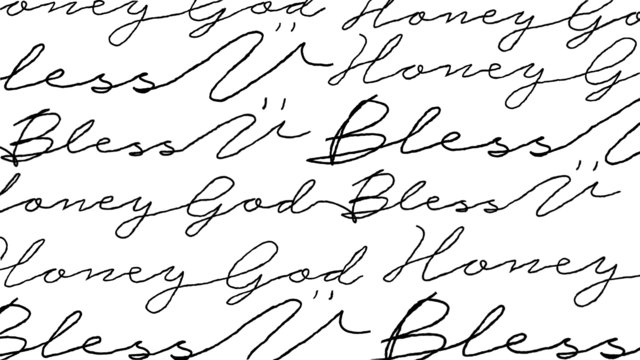 oney God Honey Go
less Ü Honey G
Bless Ü Bless
oney God Bless Ü
Honey God Honey
Bless Ü Bless